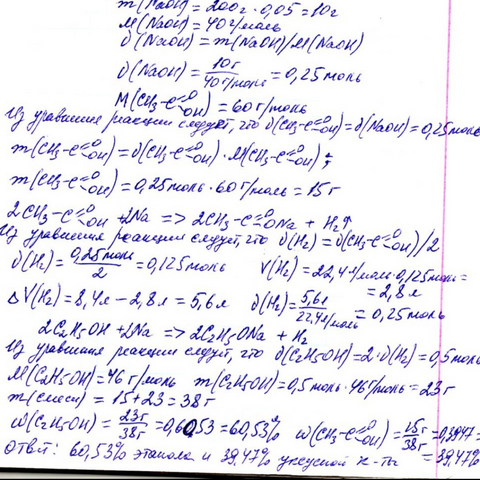 m(NaOH) = 200г · 0,05 = 10г
M(NaOH) = 40г/моль
υ(NaOH) = m(NaOH)/M(NaOH)
υ(NaOH) = 10г/40г/моль = 0,25моль
M(CH₃-C=O OH) = 60г/моль
Из уравнения реакции следует, что υ(CH₃-C=O OH) = υ(NaOH) = 0,25моль
m(CH₃-C=O OH) = υ(CH₃-C=O OH) · M(CH₃-C=O OH);
m(CH₃-C=O OH) = 0,25моль · 60г/моль = 15г
2CH₃-C=O OH + 2Na => 2CH₃-C=O ONa + H₂↑
Из уравнения реакции следует, что υ(H₂) = υ(CH₃-C=O OH)/2
υ(H₂) = 0,25моль/2 = 0,125моль V(H₂) = 22,4л/моль · 0,125моль =
= 2,8л
ΔV(H₂) = 8,4л - 2,8л = 5,6л υ(H₂) = 5,6л/22,4л/моль = 0,25моль
2C₂H₅OH + 2Na => 2C₂H₅ONa + H₂
Из уравнения реакции следует, что υ(C₂H₅OH) = 2·υ(H₂) = 0,5моль
M(C₂H₅OH) = 46г/моль m(C₂H₅OH) = 0,5моль · 46г/моль = 23г
m(смеси) = 15 + 23 = 38г
ω(C₂H₅OH) = 23г/38г = 0,6053 = 60,53% ω(CH₃-C=O OH) = 15г/38г = 0,3947 =
= 39,47%
Ответ: 60,53% этанола и 39,47% уксусной к-ты